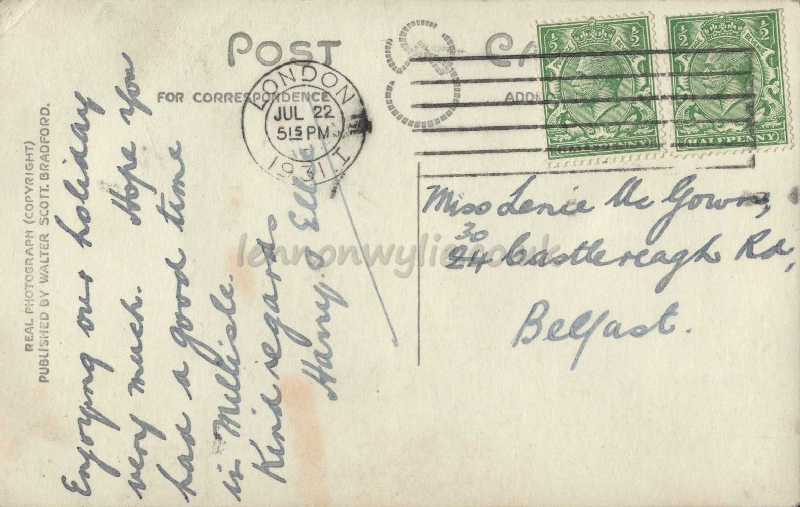 POST CA
FOR CORRESPONDENCE
ADD
LONDON
JUL 22
5 15 PM
1931
HALFPENNY
HALFPENNY
1/2 1/2
1/2 1/2
REAL PHOTOGRAPH (COPYRIGHT)
PUBLISHED BY WALTER SCOTT, BRADFORD.
Enjoying our holiday
very much. Hope you
had a good time
in Millisle.
Kind regards
Harry &
Miss Lenie Mc Gown,
30
24 Castlereagh Rd,
Belfast.
lennonwylie.co.uk